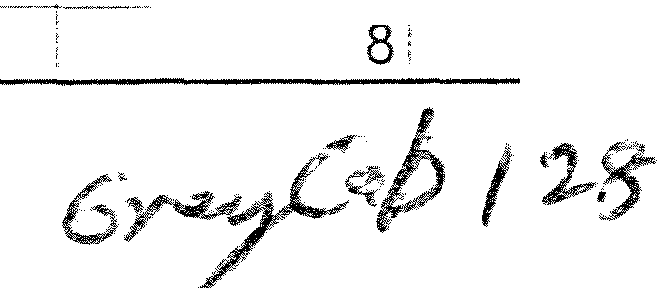 8
Grey Cab 128